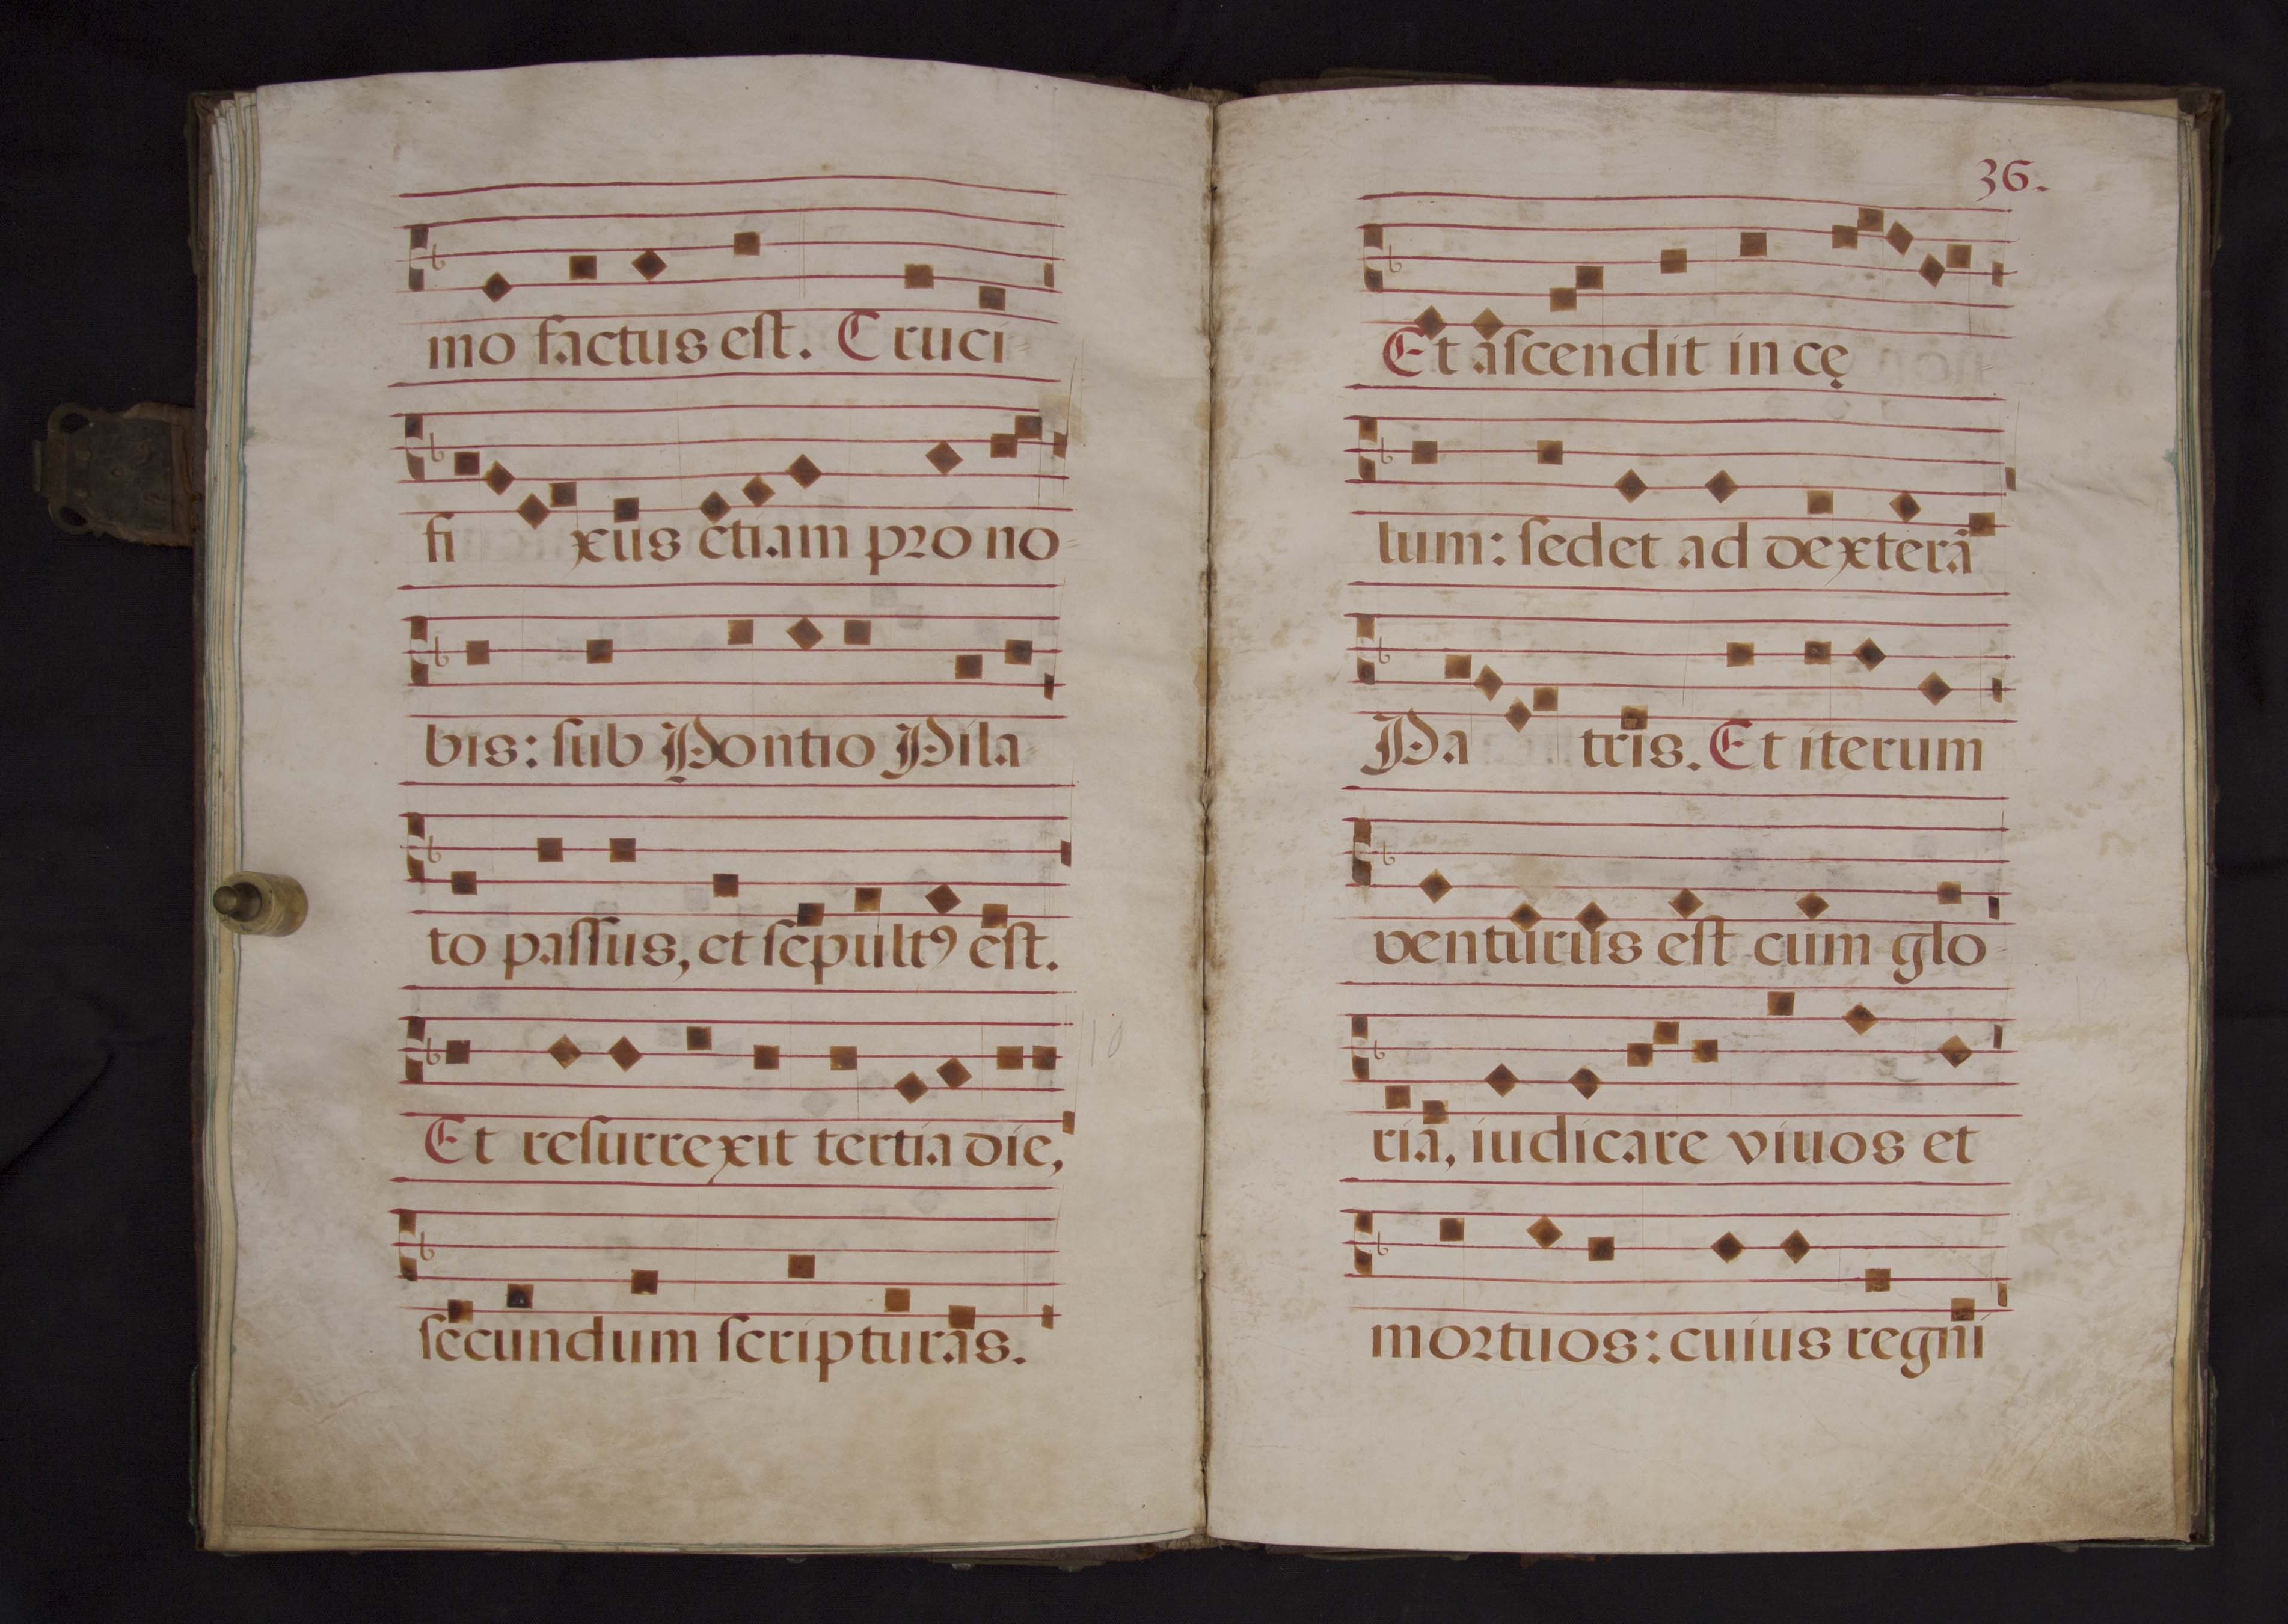 mo factus eſt. Cruci
fi xus etiam pro no
bis: ſub Pontio Pila
to paſſus, et ſepultꝰ eſt.
Et reſurrexit tertia die,
10
ſecundum ſcripturas.
36.
Et aſcendit in cę
lum: ſedet ad dexterã
Pa tris. Et iterum
venturus eſt cum glo
ria, iudicare viuos et
mortuos: cuius regni